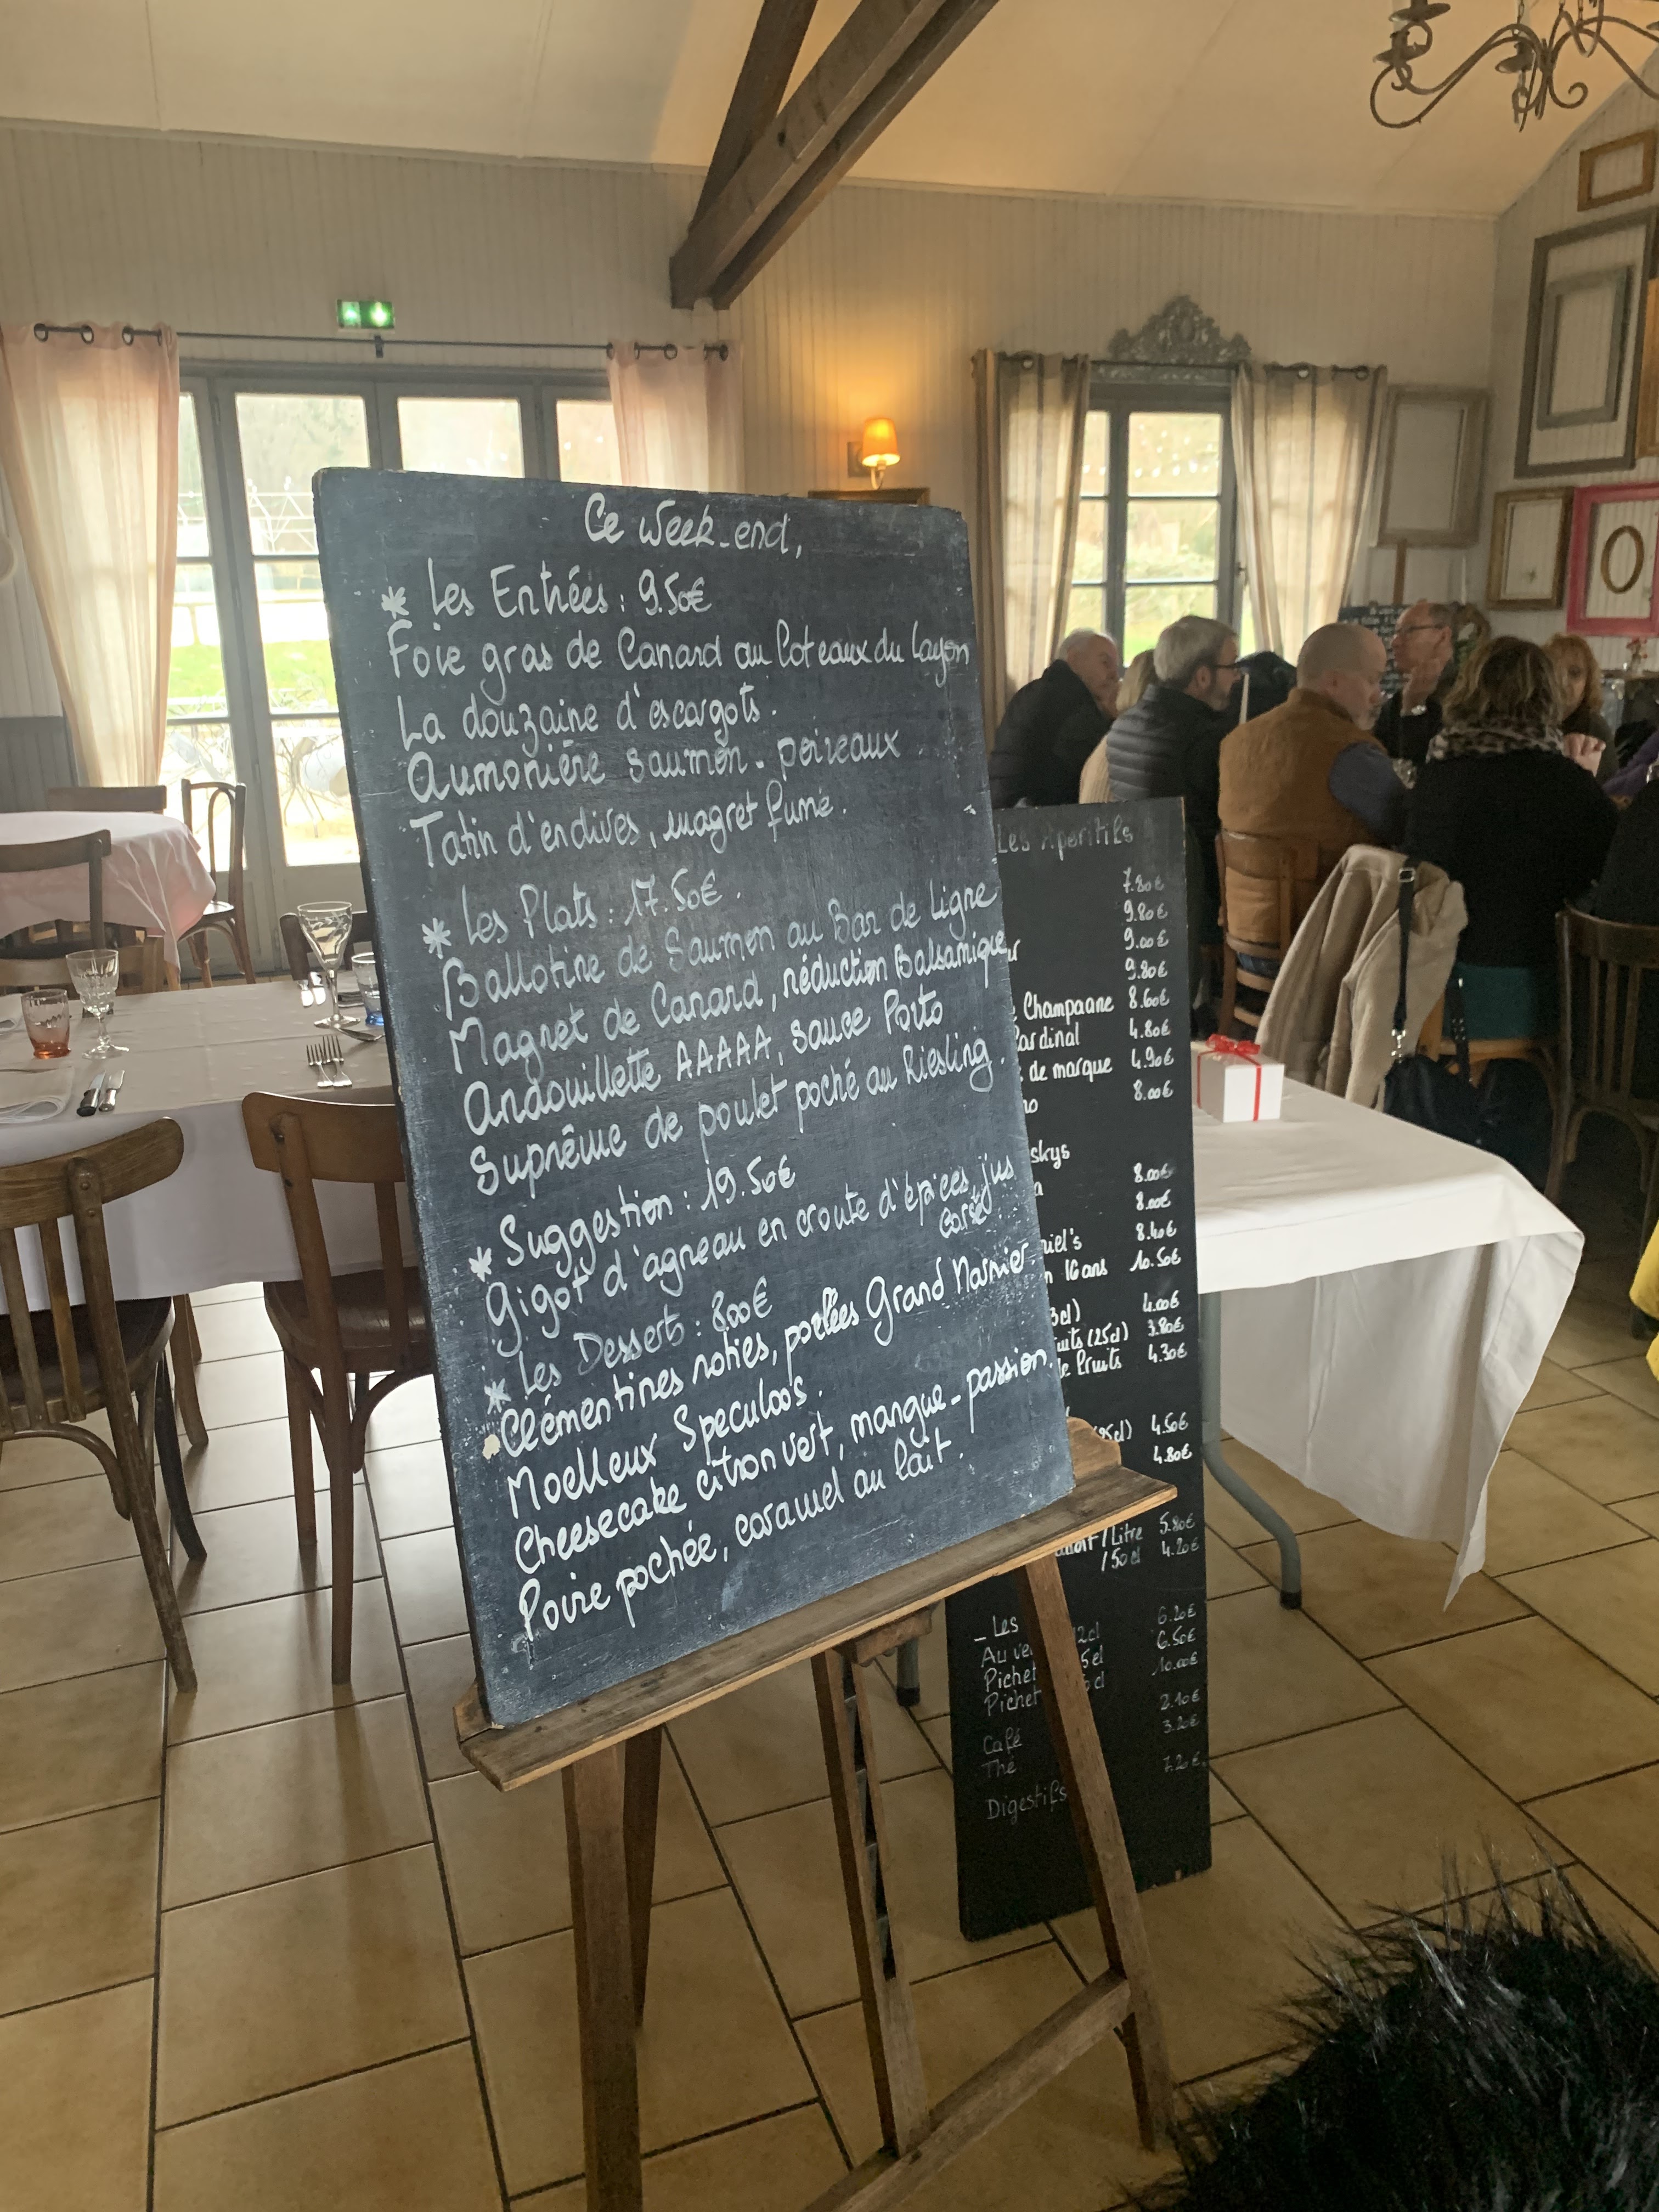 Ce Week-end,
* Les Entrées : 9.50€
Foie gras de Canard au Coteaux du Layon
La douzaine d'escargots.
Aumonière saumon - poireaux
Tatin d'endives, magret fumé.
* Les Plats : 17.50€.
Ballotine de Saumon au Bar de Ligne
Magret de Canard, réduction Balsamique,
Andouillette AAAAA, sauce Porto
Suprême de poulet poché au Riesling.
* Suggestion : 19.50€
Gigot d'agneau en croute d'épices, jus
corsé
* Les Desserts : 8.00€
Clémentines roties, poélées Grand Marnier.
Moelleux Speculoos.
Cheesecake citron vert, mangue-passion.
Poire pochée, caramel au lait.
Les Aperitifs
7.80€
9.80€
9.00€
9.80€
Champagne 8.60€
Cardinal 4.80€
de marque 4.90€
8.00€
skys
8.00€
8.00€
niel's 8.40€
16 ans 10.50€
3cl) 4.00€
uits (25cl) 3.80€
de fruits 4.30€
4.50€
4.80€
/Litre 5.80€
/50cl 4.20€
_ Les
Au ve 12cl 6.20€
Pichet 5cl 6.50€
Pichet cl 10.00€
Café 2.10€
Thé 3.20€
Digestifs 7.20€